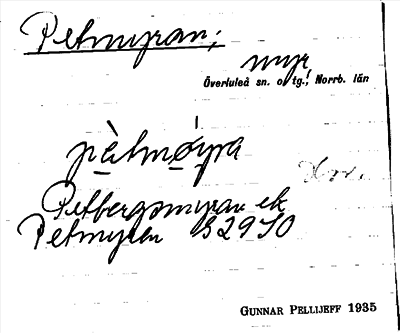 Petmyran;
myr
Överluleå sn. o. tg., Norrb. län
pètmø̀yra
Petbergsmyran ek
Petmyren 132930
GUNNAR PELLIJEFF 1935